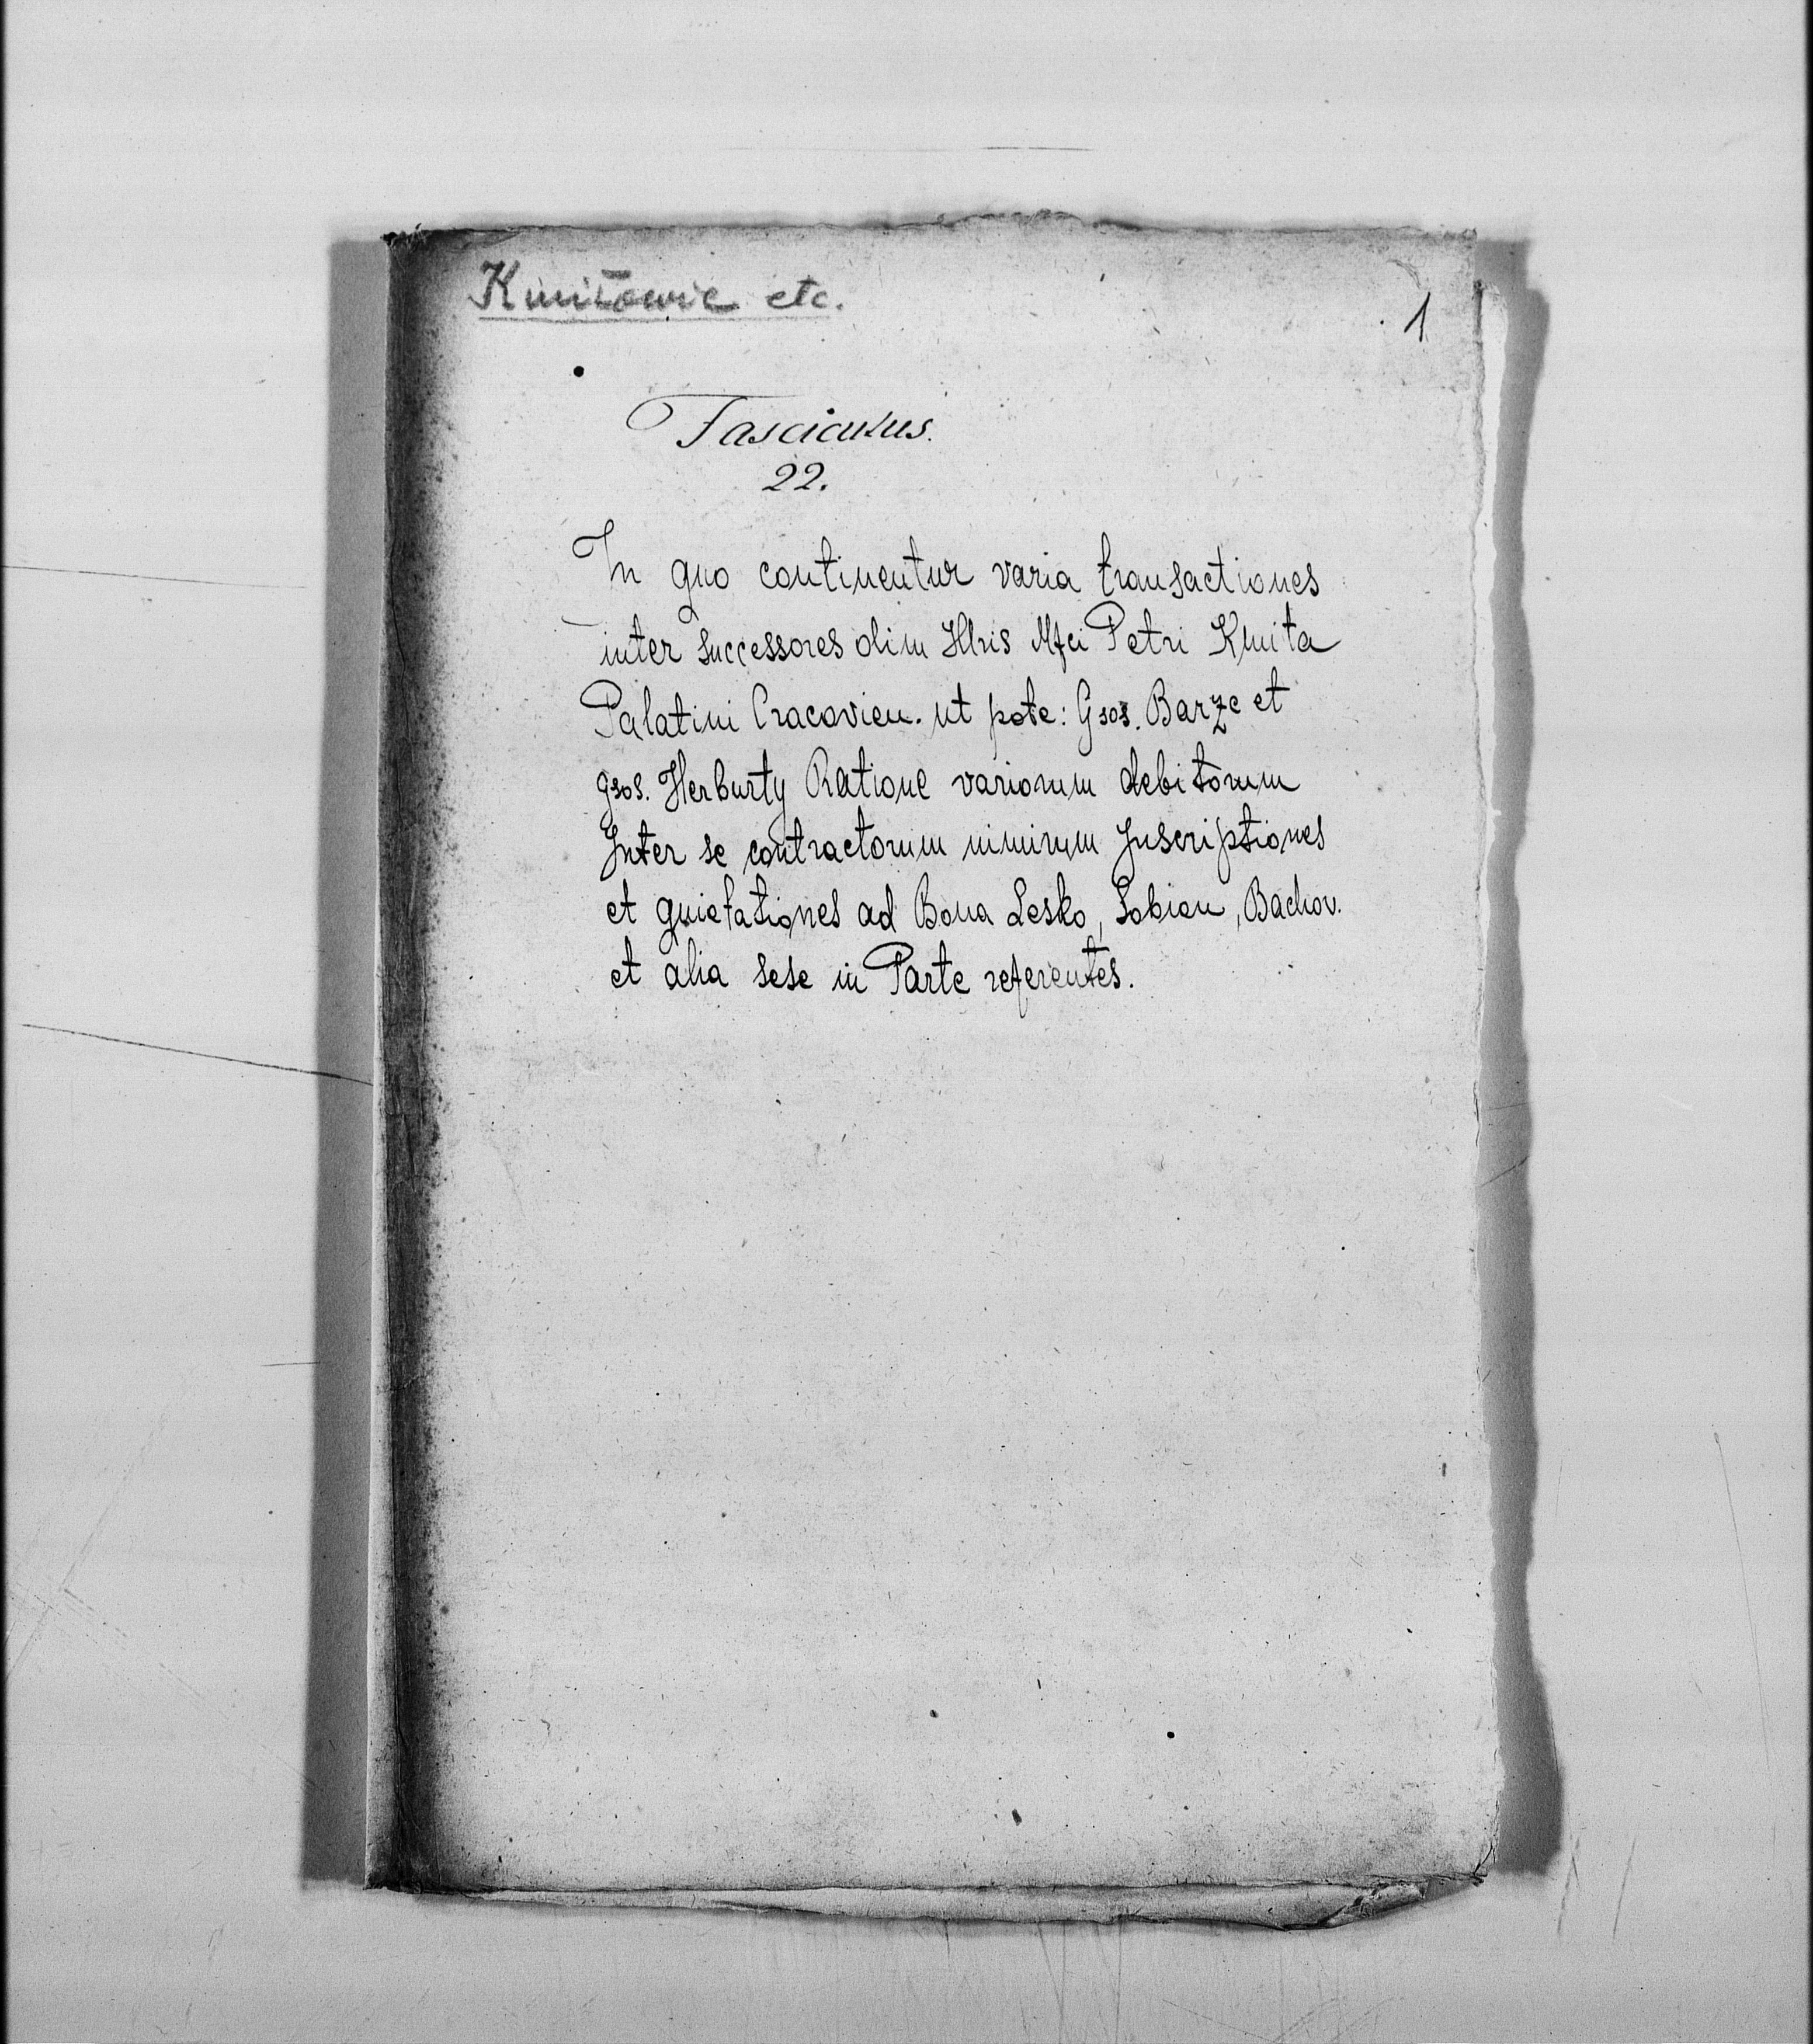 Kmitowie etc.
1
Fasciculus.
22.
In quo continentur varia transactiones
inter successores olim Illris Mfci Petri Kmita
Palatini Cracovien. ut pote: Gsos. Barze et
gsos. Herburty Ratione variorum debitorum
Inter se contractorum nimirum Inscriptiones
et quietationes ad Bona Lesko, Sobien, Bachov.
et alia sese in Parte referentes.